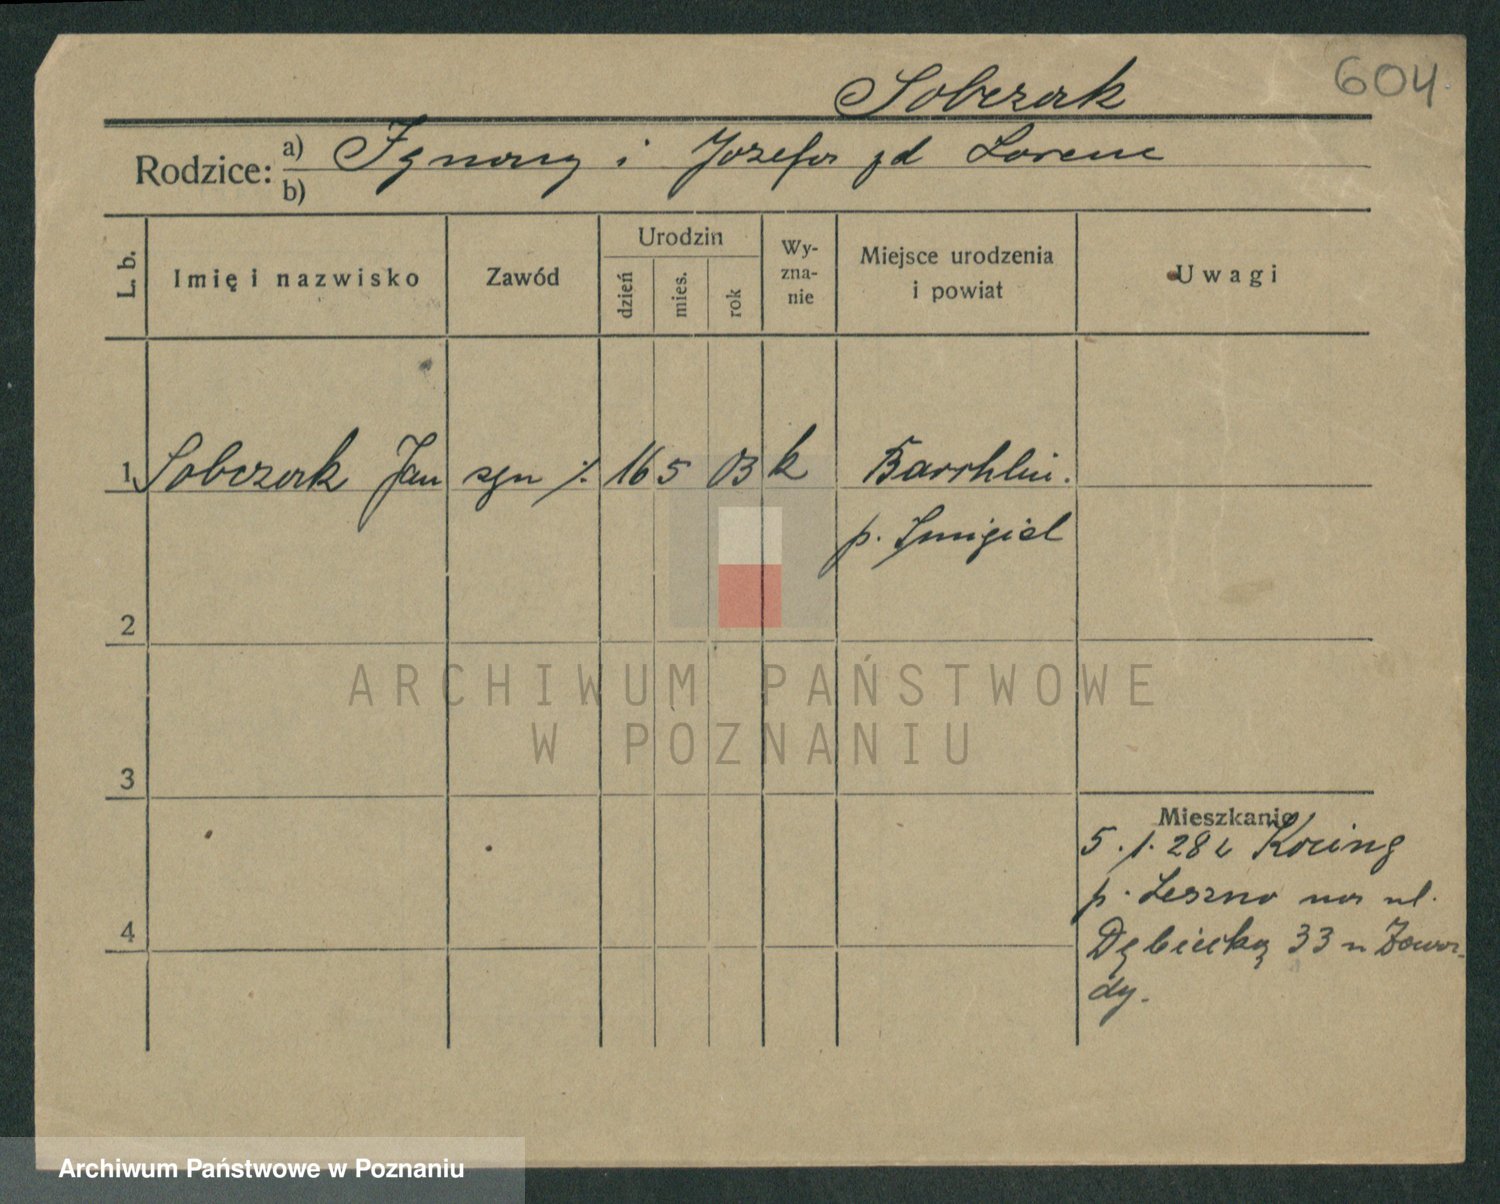 604
Sobczak
Rodzice: a) Ignacy i Józefa zd Lorenc
b)
L. b. Imię i nazwisko Zawód Urodzin dzień mies. rok Wy-zna-nie Miejsce urodzenia i powiat Uwagi
1 Sobczak Jan 16 5 03 k
p. Śmigiel
2
ARCHIWUM PAŃSTWOWE
W POZNANIU
3
Mieszkanie
5. 1. 28 z
p. Leszno na ul.
4
Dębiecką 33 u Zawa-
dy.
Archiwum Państwowe w Poznaniu